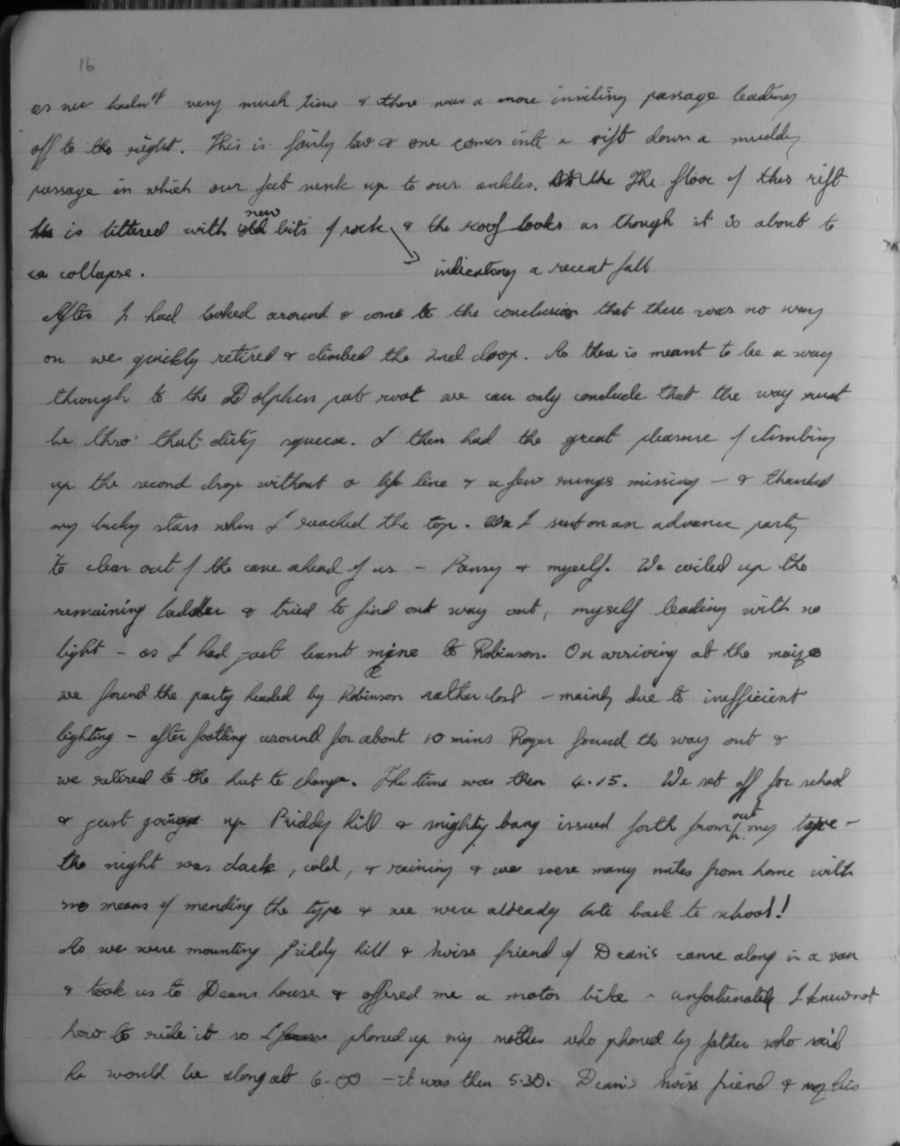 16
as we hadn't very much time & there was a more inviting passage leading
off to the right. This is fairly low & one comes into a rift down a muddy
passage in which our feet sunk up to our ankles. The floor of this rift
is littered with new bits of rock & the roof looks as though it is about to
collapse. indicating a recent fall
After I had looked around & come to the conclusion that there was no way
on we quickly retired & climbed the 2nd drop. As there is meant to be a way
through to the Dolphin pot root we can only conclude that the way must
be thro' that dirty squeeze. I then had the great pleasure of climbing
up the second drop without a life line & a few rungs missing - & thanked
my lucky stars when I reached the top. I sent on an advance party
to clear out of the cave ahead of us - & myself. We coiled up the
remaining ladder & tried to find out way out, myself leading with no
light - as I had just leant mine to Robinson. On arriving at the maize
we found the party headed by Robinson rather lost - mainly due to inefficient
lighting - after footling around for about 10 mins Roger found the way out &
we retired to the hut to change. The time was then 4.15. We set off for school
& just going up Priddy hill a mighty bang issued forth from out of my tyre -
the night was dark, cold, & raining & we were many miles from home with
no means of mending the type & we were already late back to school!
As we were mounting Priddy hill a friend of Dean's came along in a van
& took us to Deans house & offered me a motor bike - unfortunately I knew not
how to ride it so I phoned up my mother who phoned by father who said
he would be along at 6.00 - it was then 5.30. Dean's friend & his